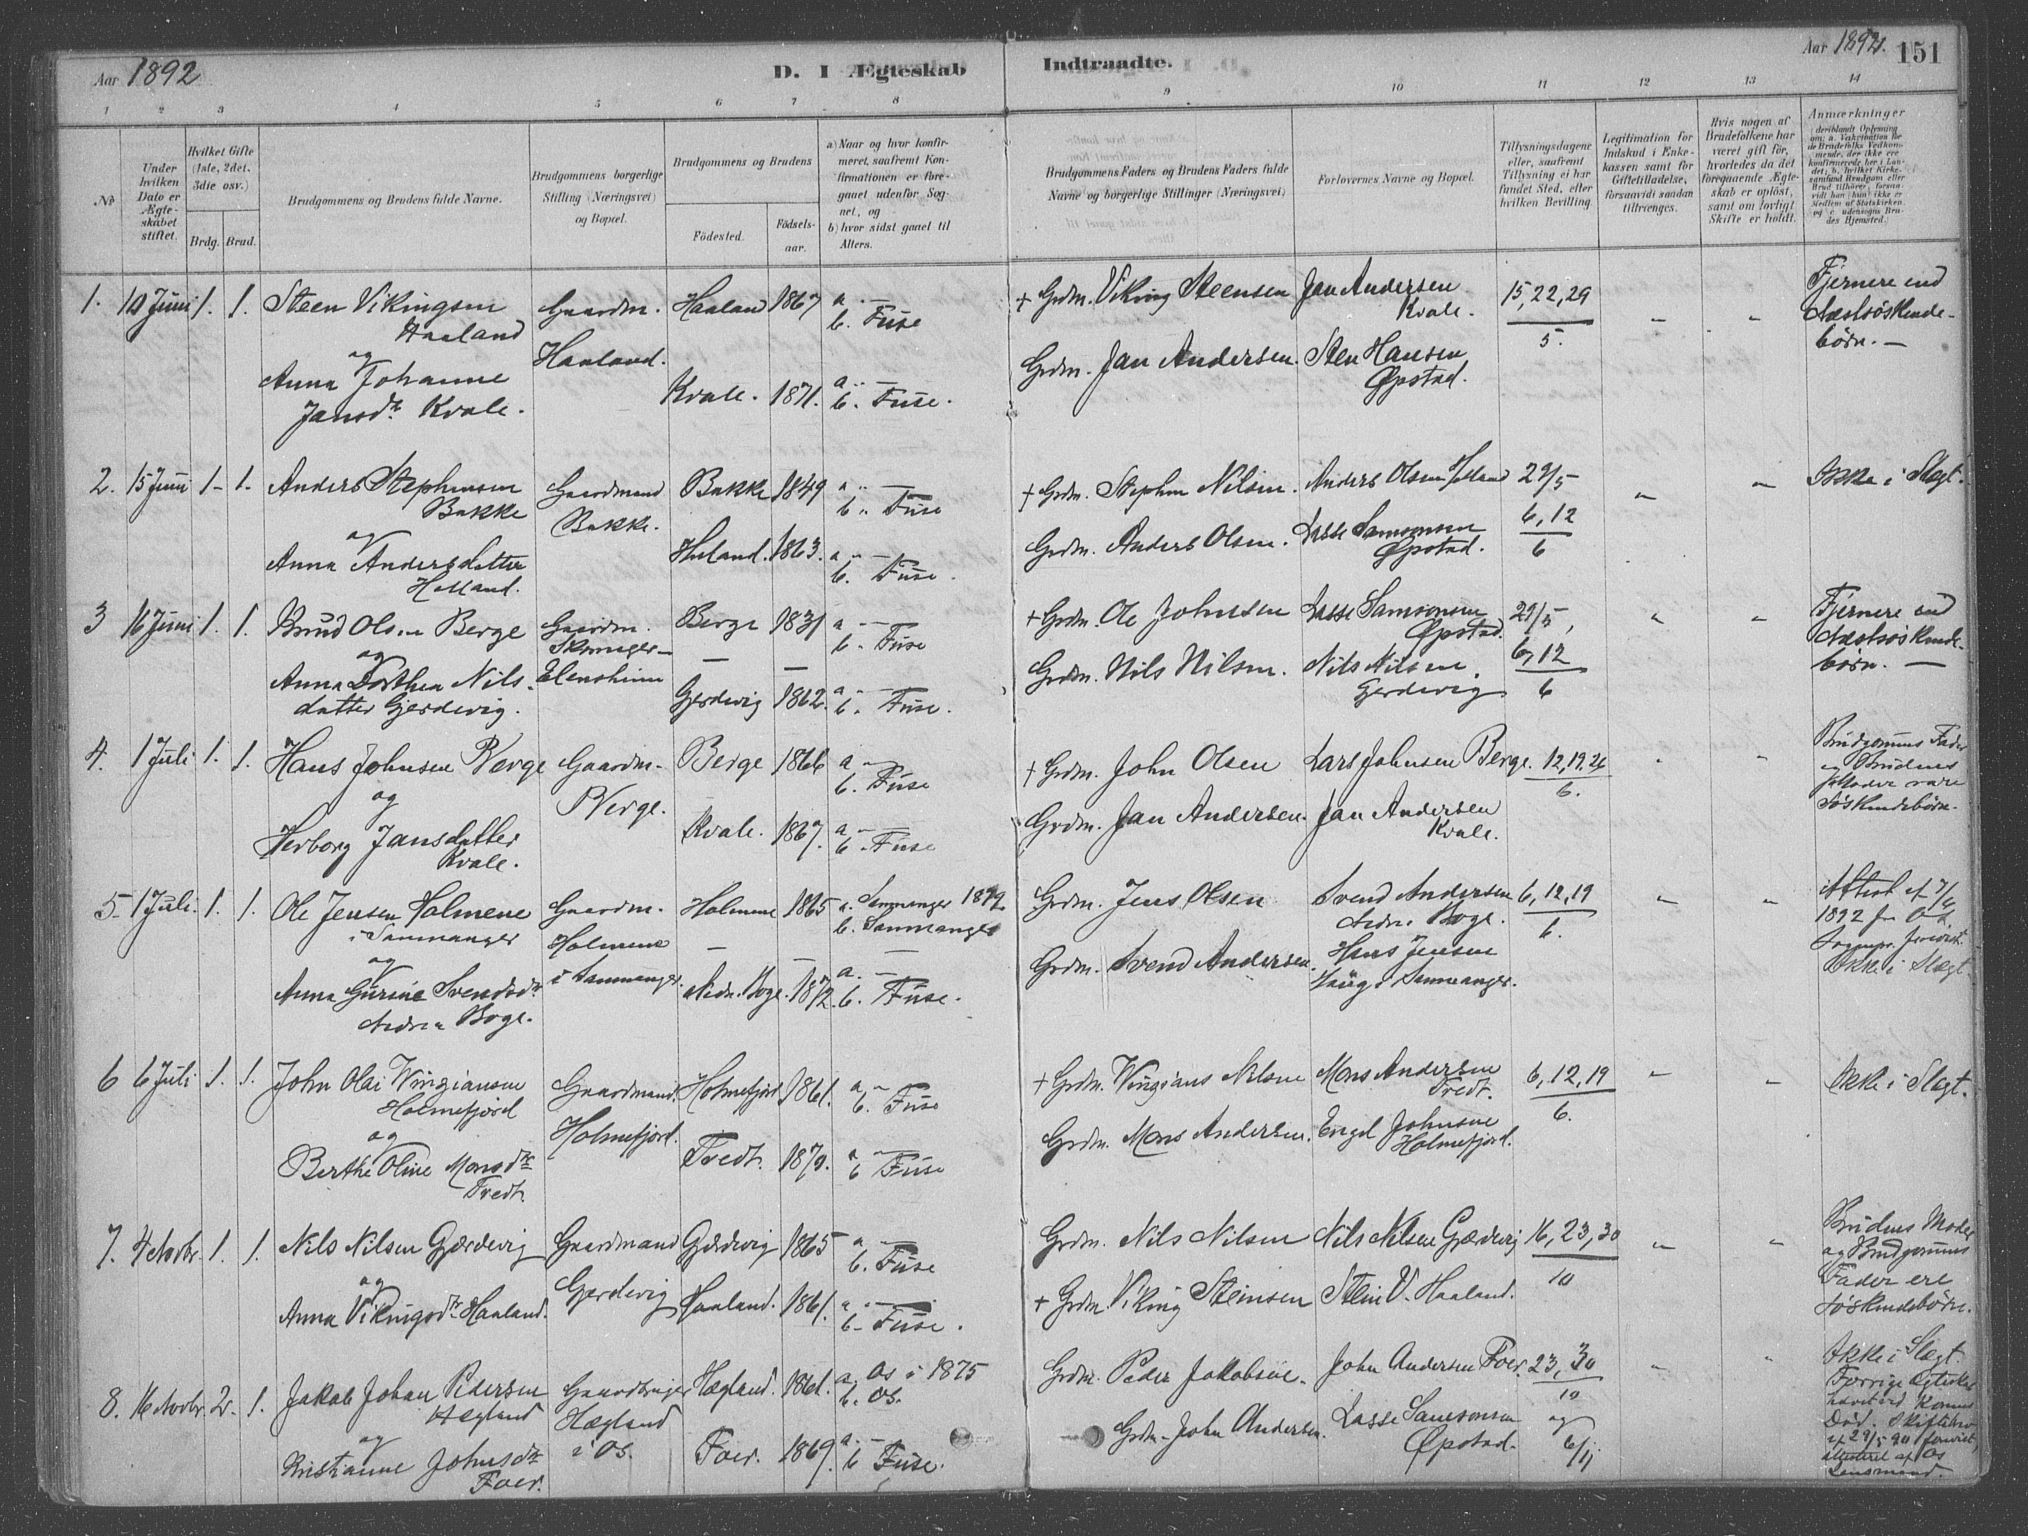 Aar 1892
D. I Ægteskab Indtraadte.
Aar 1892. 151
1 2 3 4 5 6 7 8 9 10 11 12 13 14
№
Under hvilken Dato er Ægteskabet stiftet.
Hvilket Gifte (1ste, 2det, 3die osv.)
Brdg. Brud.
Brudgommens og Brudens fulde Navne.
Brudgommens borgerlige Stilling (Næringsvei) og Bopæl.
Brudgommens og Brudens
Fødested.
Fødselsaar.
a) Naar og hvor konfirmeret, saafremt Konfirmationen er foregaaet udenfor Sognet, og
b) hvor sidst gaaet til Alters.
Brudgommens Faders og Brudens Faders fulde Navne og borgerlige Stillinger (Næringsvei)
Forlovernes Navne og Bopæl.
Tillysningsdagene eller, saafremt Tillysning ei har fundet Sted, efter hvilken Bevilling.
Legitimation for Indskud i Enkekassen samt for Giftetilladelse, forsaavidt saadan tiltrænges.
Hvis nogen af Brudefolkene har været gift før, hvorledes da det foregaaende Ægteskab er opløst, samt om lovligt Skifte er holdt.
Anmærkninger
1. 10 Juni 1. 1. Steen Vikingsen Haaland
og
Anna Johanne Jansdtr Kvale.
Gaardm. Haaland.
Haaland 1867 a. — b. Fuse
Kvale. 1871. a. — b. Fuse.
+ Grdm. Viking Steensen
Grdm. Jan Andersen.
Jan Andersen Kvale.
Sten Hansen Øpstad.
15, 22, 29
5.
Fjernere end Næstsøskendebørn. —
2. 15 Juni 1. 1. Anders Stephensen Bakke
og
Anna Andersdatter Holland.
Gaardmand Bakke.
Bakke 1849 a. — b. Fuse
Huland. 1863. a. — b. Fuse.
+ Grdm. Stephen Nilsen.
Grdm. Anders Olsen.
Anders Olsen
Lasse Samsonsen Øpstad.
29/5
6, 12
6
Ikke i Slægt.
3 16 Juni 1. 1. Knud Olsen Berge
og
Anna Dorthea Nilsdatter Gjerdevig.
Gaardm. Skomager — Elensheim
Berge 1831 a — b. Fuse
Gjerdevig 1862. a. — b. Fuse.
+ Grdm. Ole Johnsen
Grdm. Nils Nilsen.
Lasse Samsonsen Øpstad.
Nils Nilsen Gjerdevig
29/5,
6, 12
6
Fjernere end Næstsøskendebørn. —
4. 1 Juli 1. 1. Hans Johnsen Berge
og
Herborg Jansdatter Kvale.
Gaardm. Berge.
Berge 1866 a — b. Fuse
Kvale. 1867. a — b. Fuse
+ Grdm. John Olsen
Grdm. Jan Andersen.
Lars Johnsen Berge.
Jan Andersen Kvale.
12, 19, 26
6.
Brudgommens Fader og Brudens Moder vare Søskendebørn.
5. 1 Juli. 1. 1. Ole Jensen Holmene i Sammanger
og
Anna Gurine Svendsdtr Nedre Boge.
Gaardm. Holmene i Sammanger.
Holmene 1865 a. Sammanger 1879. b. Sammanger
Nedr. Boge. 1872. a. — b. Fuse.
Grdm. Jens Olsen
Grdm. Svend Andersen.
Svend Andersen Nedre Boge.
Hans Jensen Haug i Sammanger.
6, 12, 19
6.
Attest af 7/6 1892 fra
Ikke i Slægt.
6 6 Juli 1. 1. John Olai Wingiansen Holmefjord
og
Berthe Oline Monsdtr Tredt.
Gaardmand. Holmefjord.
Holmefjord 1861. a. — b. Fuse
Tredt. 1870. a — b Fuse
+ Grdm. Wingians Nilsen
Grdm. Mons Andersen.
Mons Andersen Tredt.
Engel Johnsen Holmefjord.
6, 12, 19
6.
Ikke i Slægt.
7. 4 Novbr. 1. 1. Nils Nilsen Gjærdevig
og
Anna Vikingsdtr Haaland.
Gaardmand Gjerdevig
Gjærdevig 1865 a — b. Fuse
Haaland. 1861. a — b. Fuse.
Grdm. Nils Nilsen
+ Grdm. Viking Steinsen
Nils Nilsen Gjærdevig
Stein V. Haaland.
16, 23, 30
10
Brudens Moder og Brudgommens Fader ere Søskendebørn.
8. 16 Novbr. 2. 1. Jakob Johan Pedersen Hægland
og
Kristianne Johnsdtr Foer.
Gaardbruger Hægland i Os.
Hægland. 1861. a. Os i 1875 b. Os.
Foer. 1869. a. — b Fuse.
Grdm. Peder Jakobsen.
Grdm. John Andersen.
John Andersen Foer.
Lasse Samsonsen Øpstad.
23, 30
10
og
6/11
Ikke i Slægt.
Forrige Ægteskab hævet ved Konens Død. Skifte af 29/5 90 forevist, attesteret af Os Lensmand.